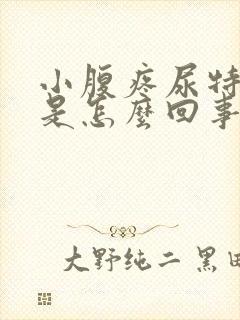 小腹疼尿特
是怎麼回事
大野纯二 黑田